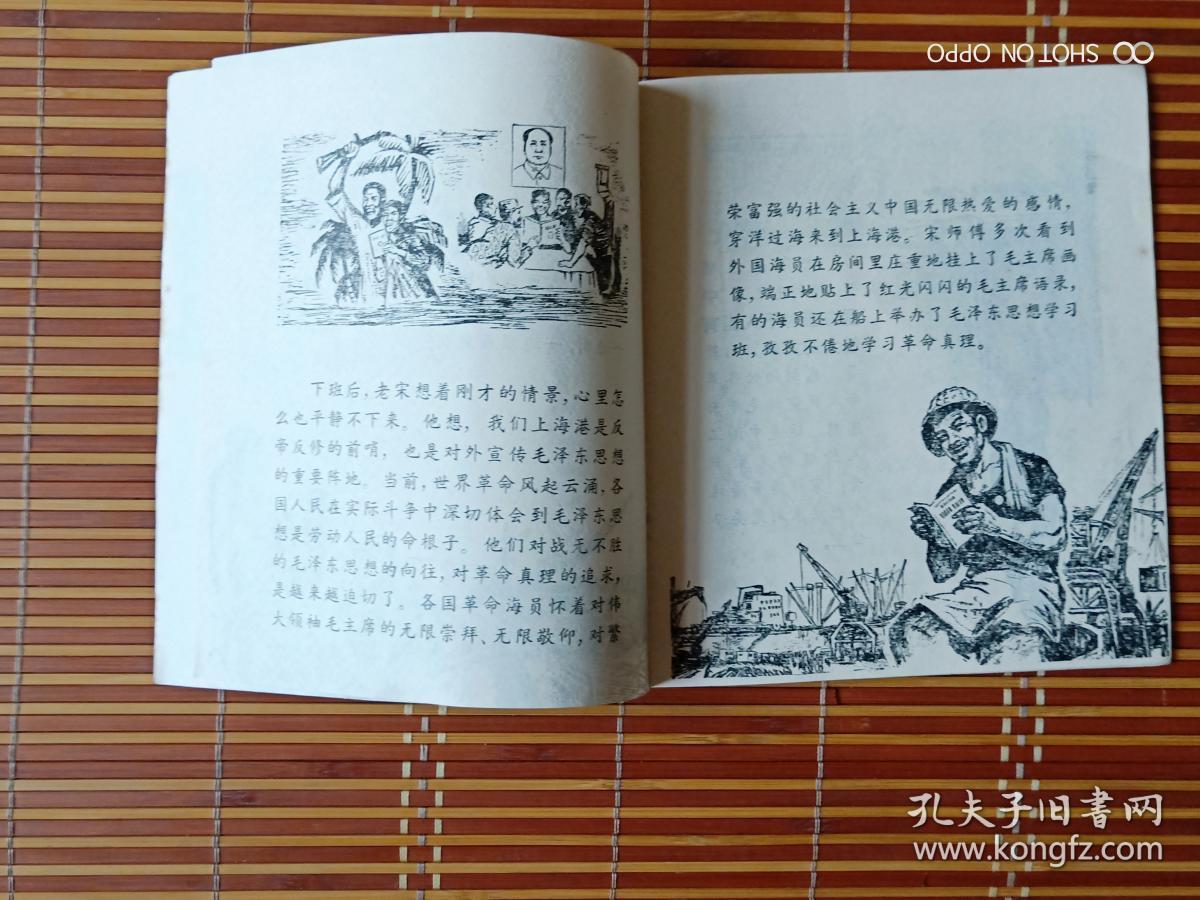 SHOT ON OPPO
下班后，老宋想着刚才的情景，心里怎
么也平静不下来。他想，我们上海港是反
帝反修的前哨，也是对外宣传毛泽东思想
的重要阵地。当前，世界革命风起云涌，各
国人民在实际斗争中深切体会到毛泽东思
想是劳动人民的命根子。他们对战无不胜
的毛泽东思想的向往，对革命真理的追求，
是越来越迫切了。各国革命海员怀着对伟
大领袖毛主席的无限崇拜、无限敬仰，对繁
荣富强的社会主义中国无限热爱的感情，
穿洋过海来到上海港。宋师傅多次看到
外国海员在房间里庄重地挂上了毛主席画
像，端正地贴上了红光闪闪的毛主席语录，
有的海员还在船上举办了毛泽东思想学习
班，孜孜不倦地学习革命真理。
孔夫子旧書网
www.kongfz.com